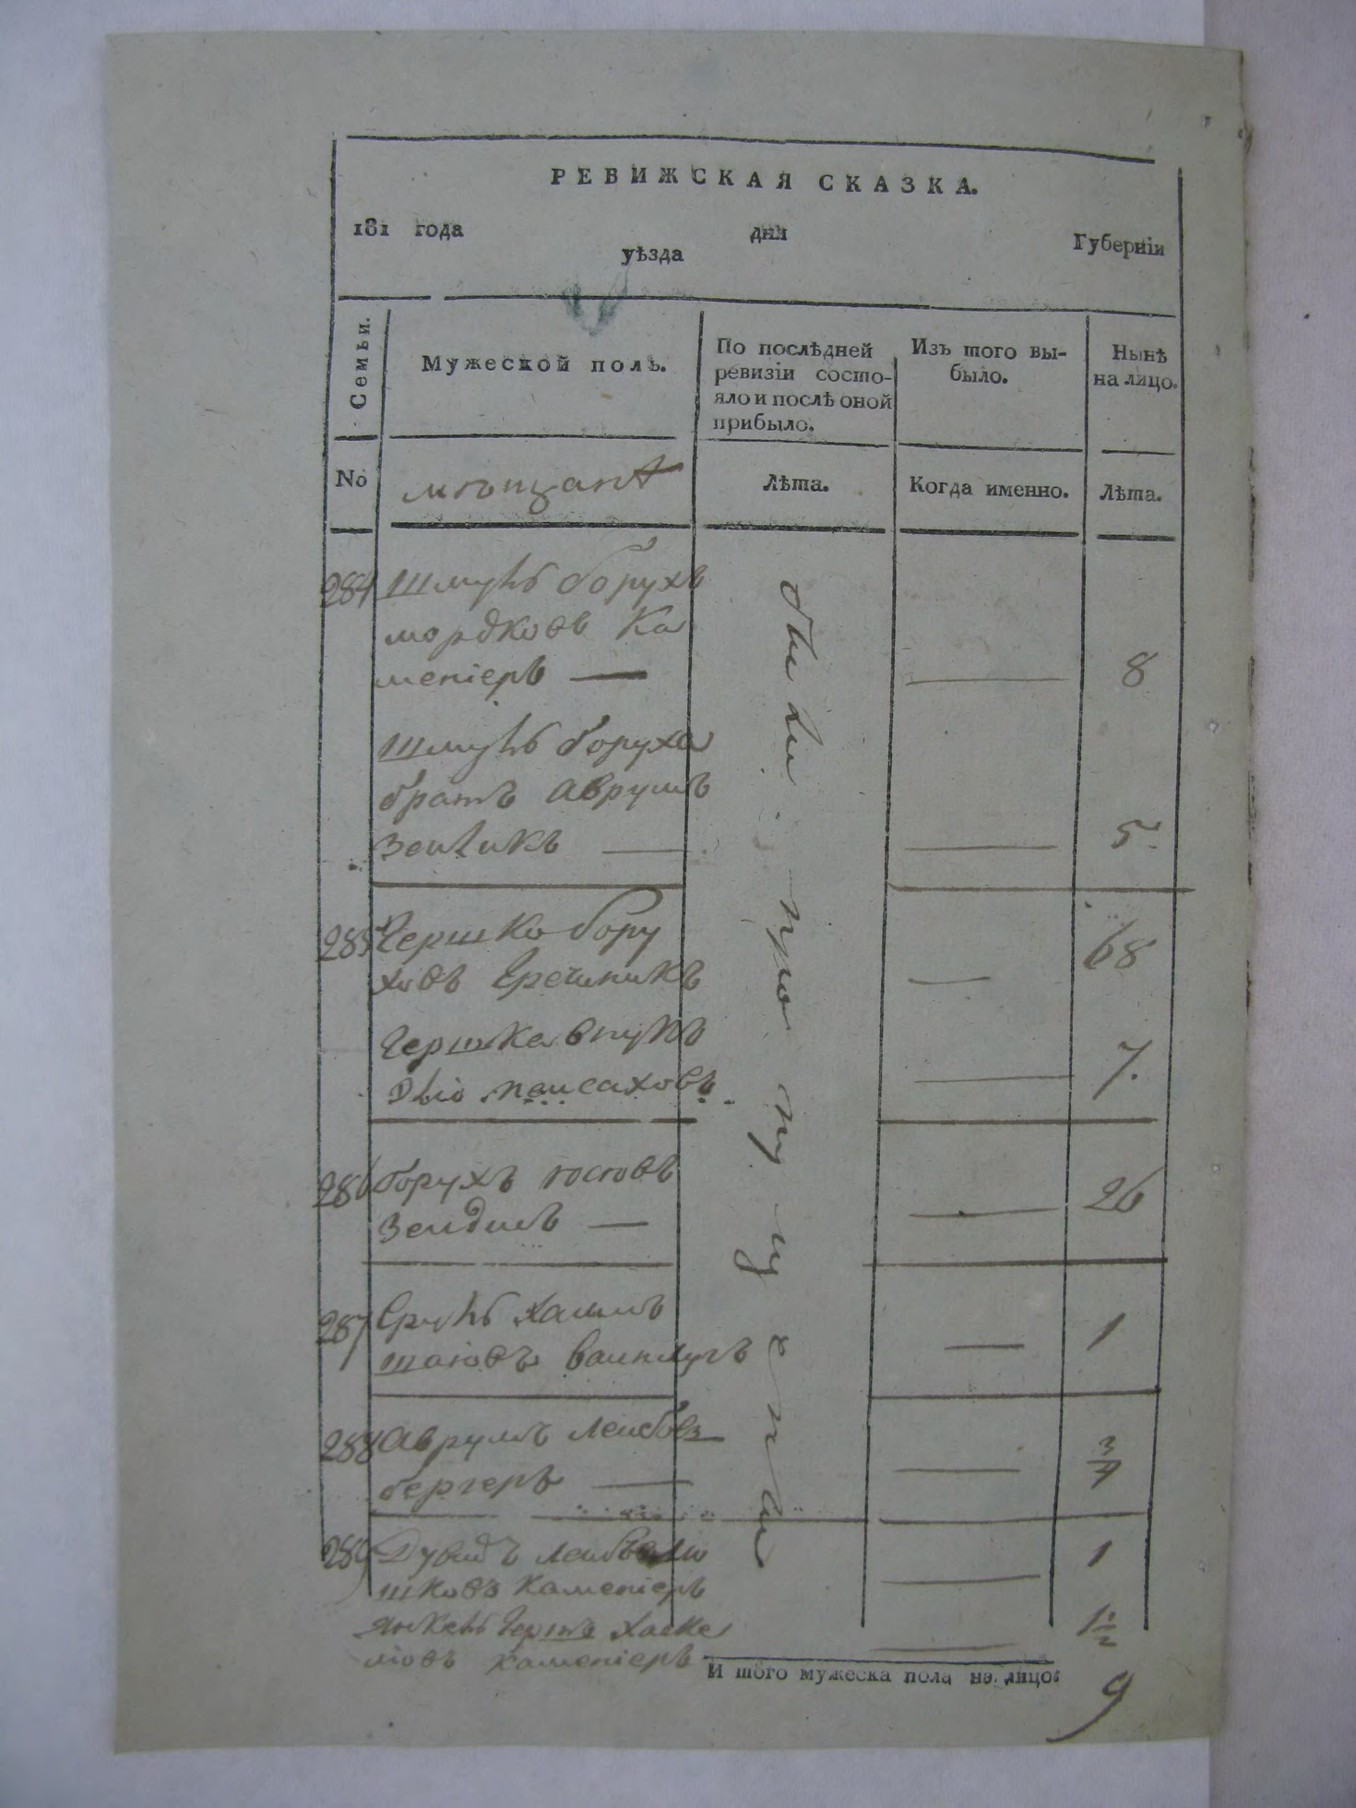 РЕВИЖСКАЯ СКАЗКА.
181 года дня
уѣзда Губерніи
Семьи.
Мужеской полъ.
По послѣдней
ревизіи состо-
яло и послѣ оной
прибыло.
Изъ того вы-
было.
Нынѣ
на лицо.
№
мѣщанѣ
Лѣта.
Когда именно.
Лѣта.
были пропущены
284 Шмуль борухъ
мордковъ Ка
меніеръ — 8
Шмуль боруха
братъ аврумъ
Зейликъ — 5.
285 Гершко бору
ховъ Гречникъ 68
Гершка внукъ
пейсаховъ 7.
286 борухъ іосіовъ
Зейдисъ — 26
287 Сруль хаимъ
шаіовъ 1
288 аврумъ лейбовъ
бергеръ — 3/4
289 Дувидъ лейбъ
шковъ Каменіеръ 1
Янкель Гершъ хаске
ліовъ каменіеръ 1 1/2
И того мужеска пола на лицо: 9